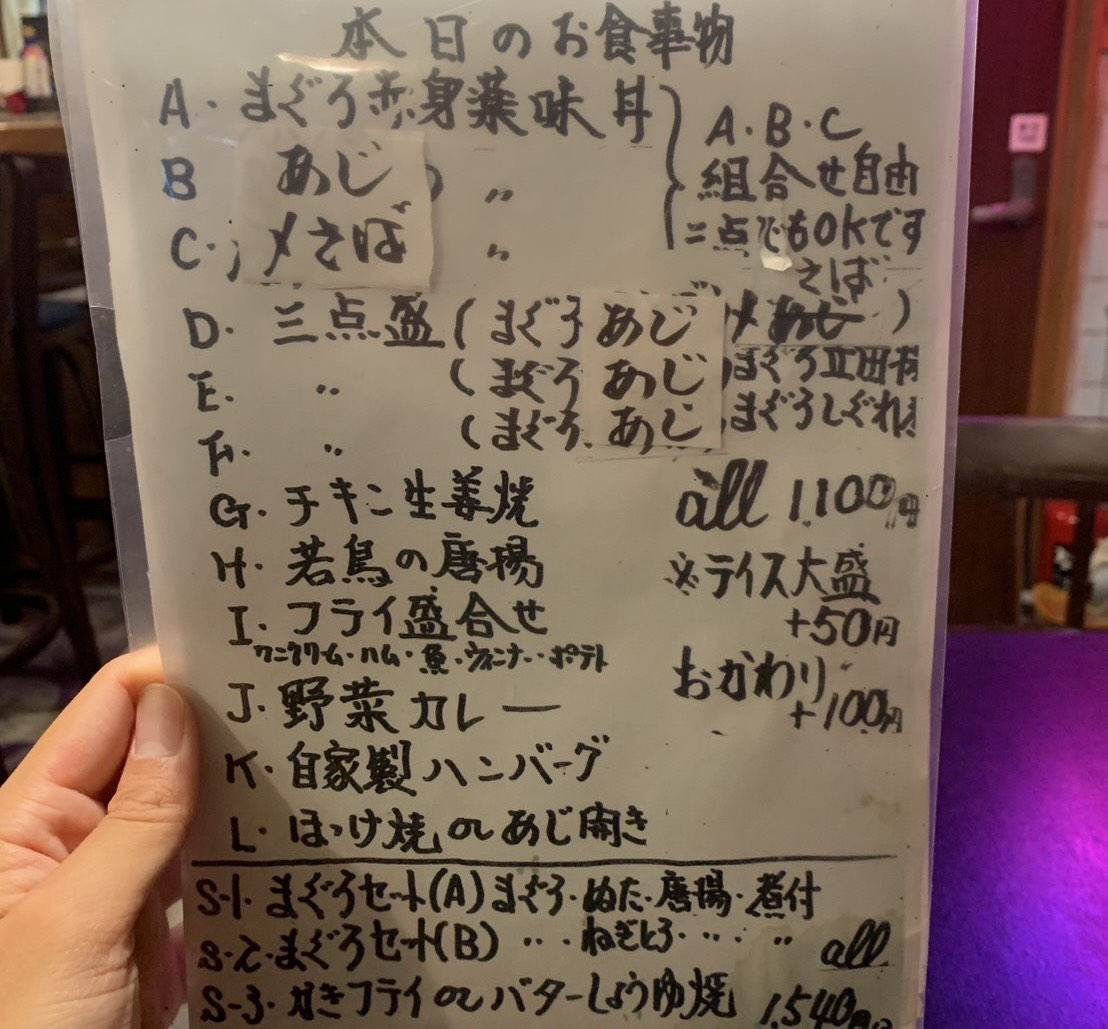 本日のお食事物
A・まぐろ赤身薬味丼
B あじ 〃
C・〆さば 〃
A・B・C
組合せ自由
二点でもOKです
さば
D・三点盛(まぐろ あじ 〆あじ)
E. 〃 (まぐろ あじ まぐろ立田
F. 〃 (まぐろ あじ まぐろしぐれ
G・チキン生姜焼
all 1,100円
H・若鳥の唐揚
※ライス大盛
+50円
I・フライ盛合せ
ハム・魚・ウィンナー・ポテト
おかわり
+100円
J・野菜カレー
K・自家製ハンバーグ
L・ほっけ焼 or あじ開き
S-1・まぐろセット(A)まぐろ・ぬた・唐揚・煮付
S-2・まぐろセット(B) 〃・ねぎとろ・〃・〃
all
S-3・かきフライ or バターしょうゆ焼 1,540円